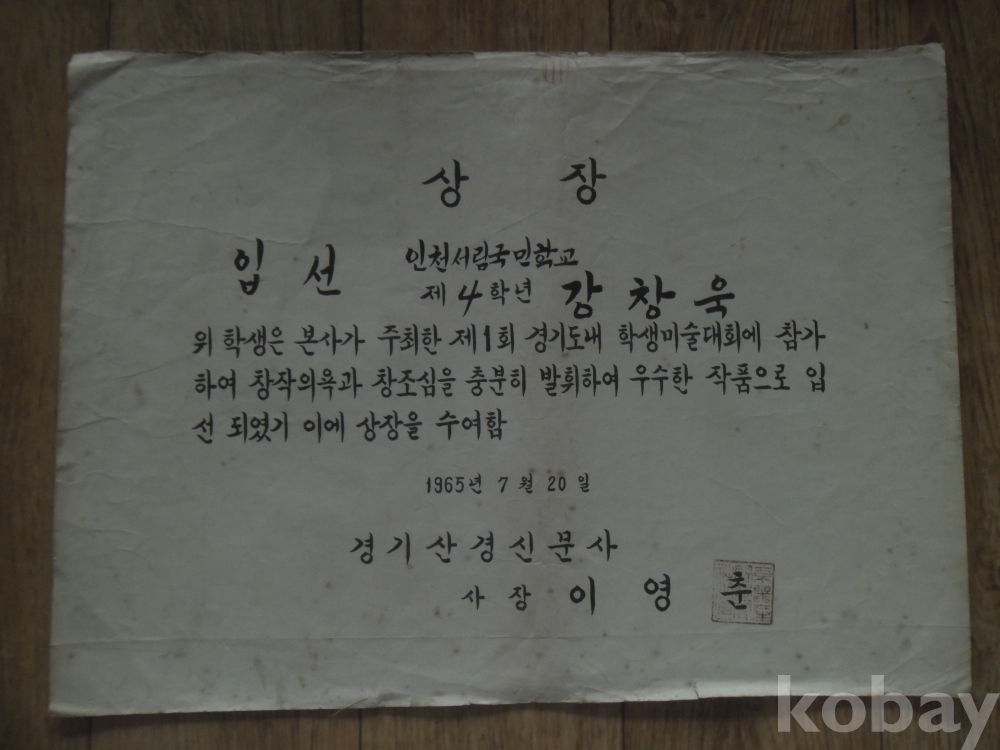 상 장
입 선 인천서림국민학교
제 4 학년 강 창 욱
위 학생은 본사가 주최한 제1회 경기도내 학생미술대회에 참가
하여 창작의욕과 창조심을 충분히 발휘하여 우수한 작품으로 입
선 되였기 이에 상장을 수여함
1965년 7 월 20 일
경기산경신문사
사 장 이 영 춘
kobay